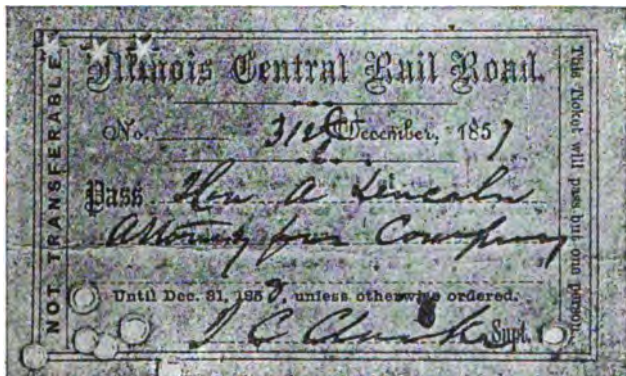 NOT TRANSFERABLE
Illinois Central Rail Road.
No. 31st December, 1857
Pass Hon A Lincoln
Attorney for Company
Until Dec. 31, 1858, unless otherwise ordered.
J C Clarke Supt.
This Ticket will pass but one person.